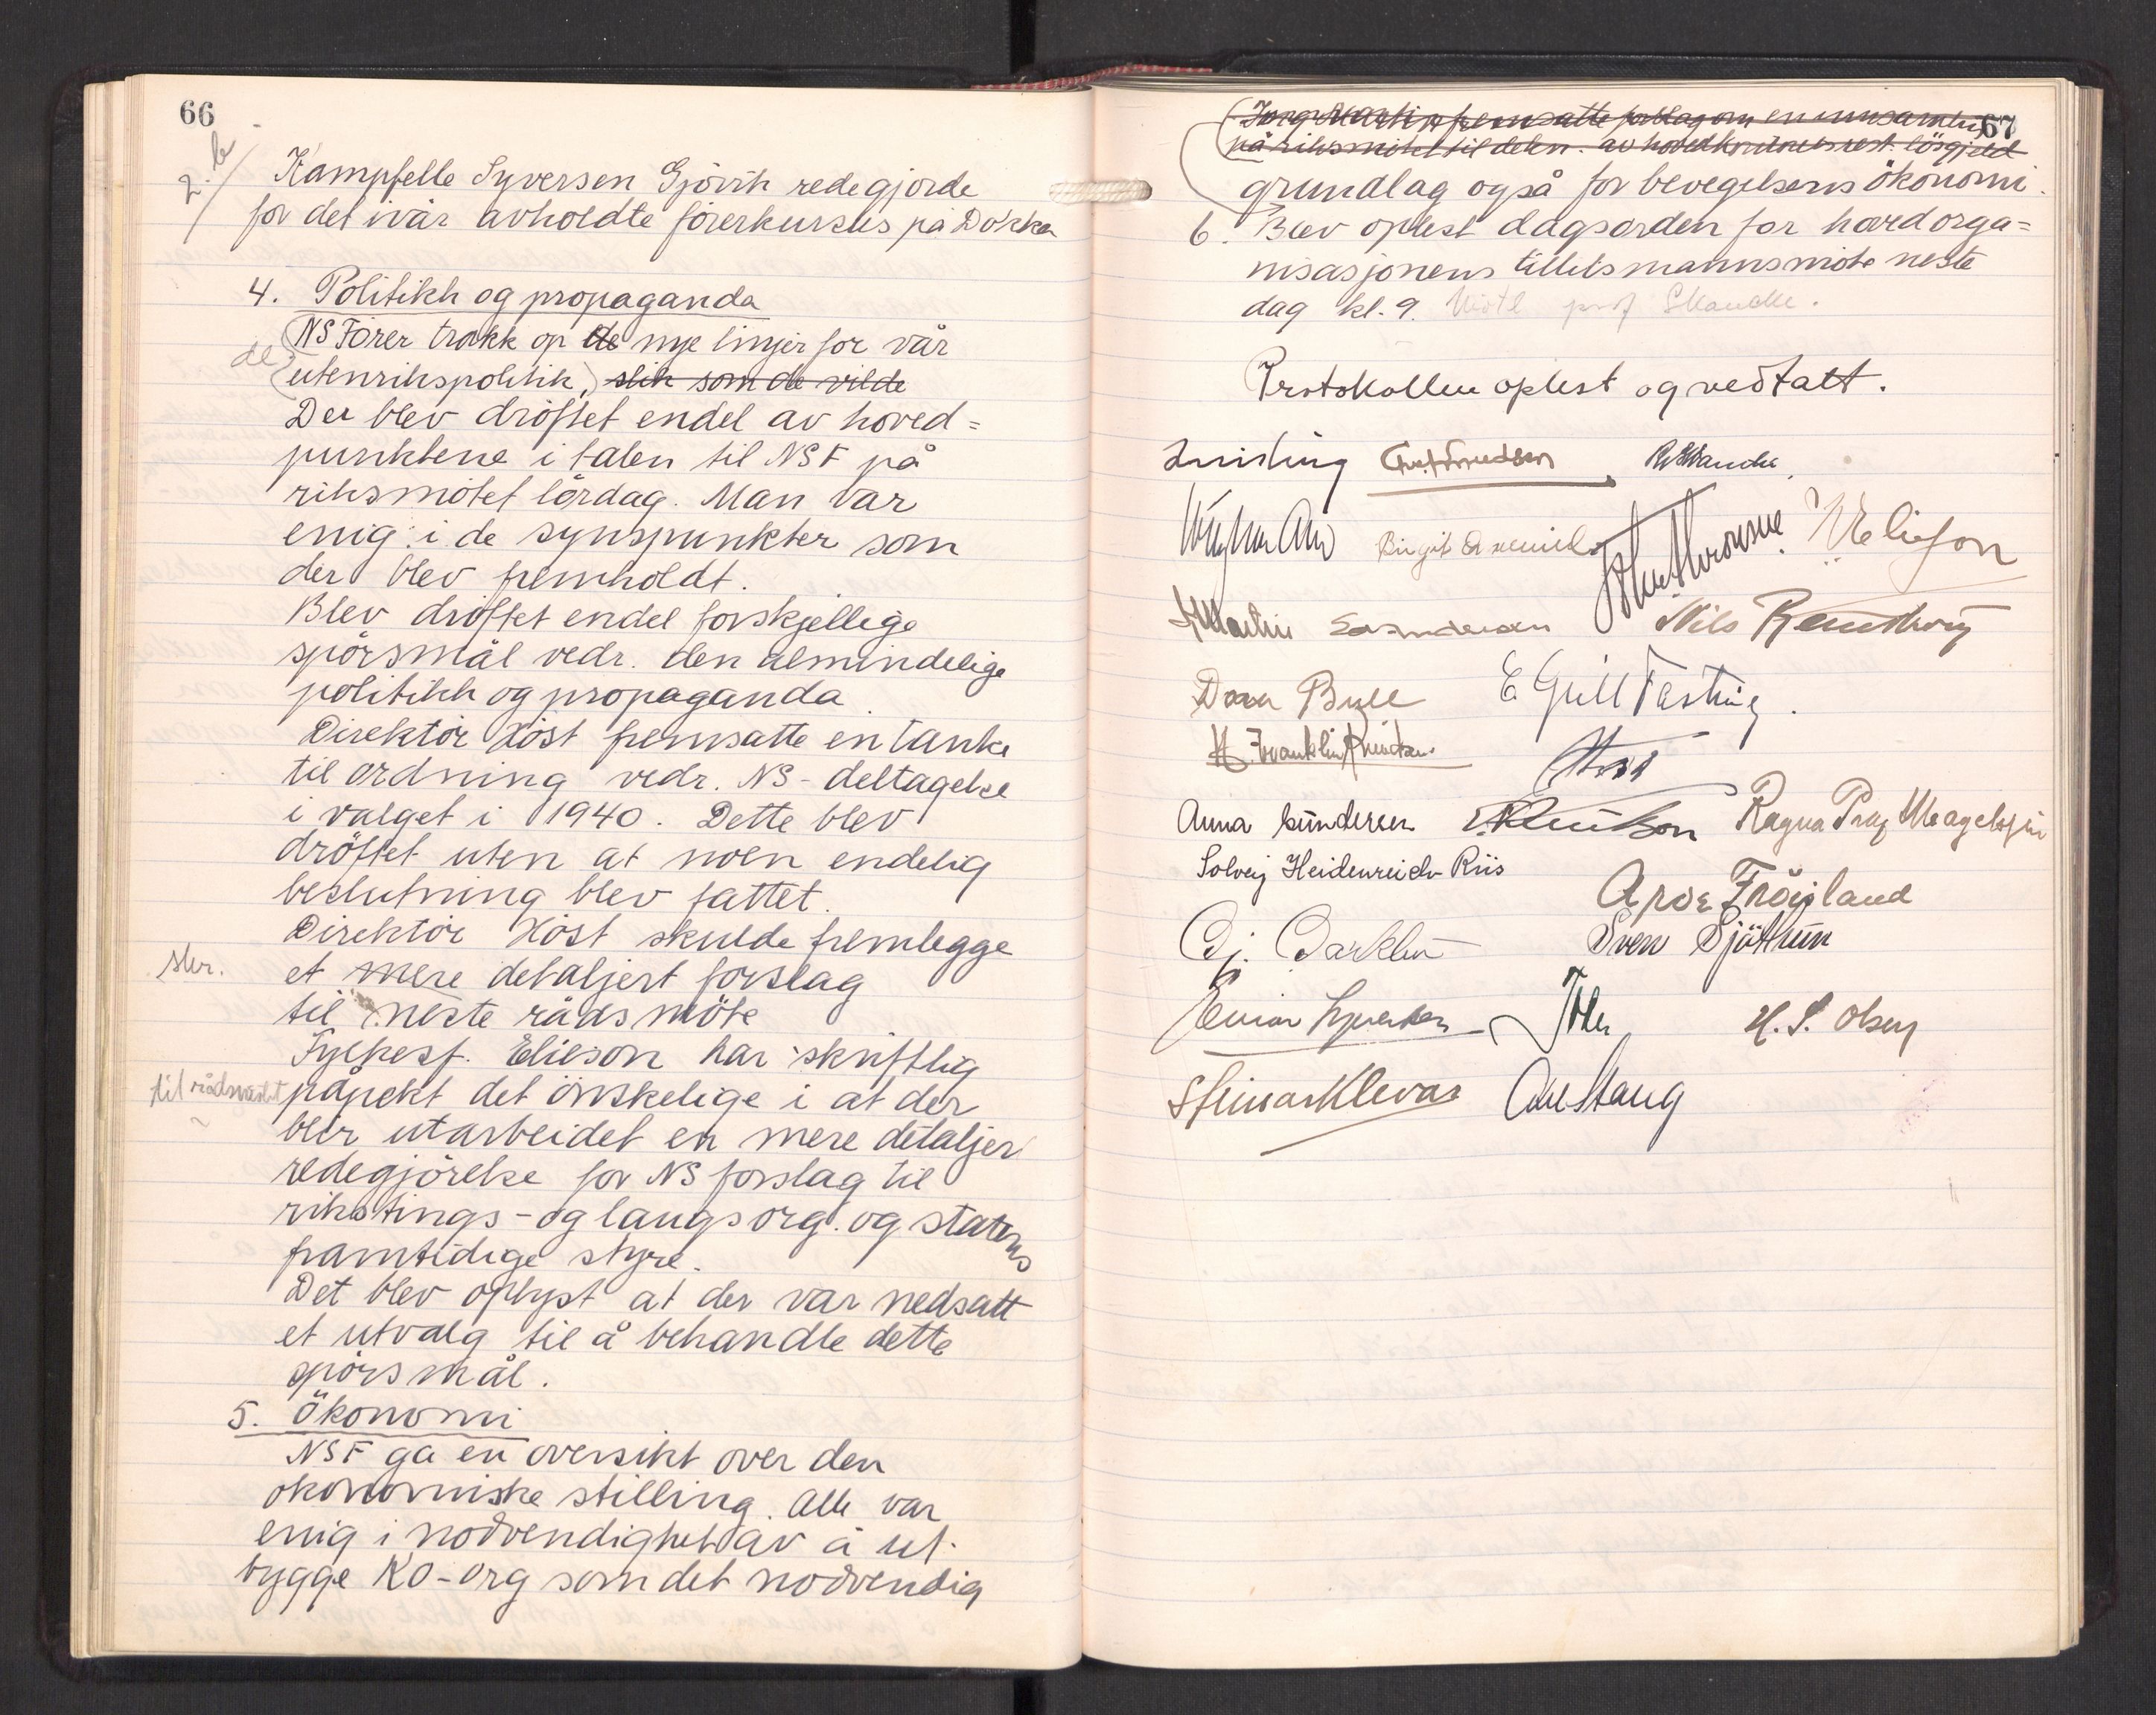 66
2. b
Kampfelle Syversen Gjövik redegjorde
for det ivår avholdte förerkursus på Dokka
4. Politikk og propaganda
NS Förer trakk op de nye linjer for vår
de
utenrikspolitik, slik som de vilde
Der blev dröftet endel av hoved=
punktene i talen til NSF på
riksmötet lördag. Man var
enig i de synspunkter som
der blev fremholdt.
Blev dröftet endel forskjellige
spörsmål vedr. den almindelige
politikk og propaganda.
Direktör Höst fremsatte en tanke
til ordning vedr. NS-deltagelse
i valget i 1940. Dette blev
dröftet uten at noen endelig
beslutning blev fattet.
Direktör Höst skulde fremlegge
skr.
et mere detaljert forslag
til neste rådsmöte
Fylkesf. Elieson har skriftlig
til rådsmötet påpekt det önskelige i at der
blir utarbeidet en mere detaljer
redegjörelse for NS forslag til
rikstings- og laugsorg. og statens
framtidige styre.
Det blev oplyst at der var nedsatt
et utvalg til å behandle dette
spörsmål.
5. Ökonomi
NSF ga en oversikt over den
ökonomiske stilling. Alle var
enig i nödvendighet av å ut-
bygge KO-org som det nödvendig
67
fremsatte forslag om en innsamling
på riksmötet til dekn. av hovedkontorets rest.
grundlag også for bevegelsens ökonomi.
6. Blev oplest dagsorden for hovedorga=
nisasjonens tillitsmannsmöte neste
dag kl. 9. prof Skancke.
Protokollen oplest og vedtatt.
Quisling R. Skancke
Birgit Elieson
Nils
Dora Bull E Gill Fasting.
H. Franklin Knudsen
Höst
Anna Gundersen Ragna Prag Magelssen
Solveig Heidenreich Riis
Arve Fröisland
Sven Sjöthun
Einar Syversen H. S. Olsen
Steinar Klevar Axel Stang